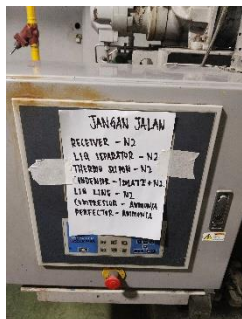 JANGAN JALAN
RECEIVER - N2
LIQ SEPARATOR - N2
THERMO SIPON - N2
CONDENSOR - ISOLATE + N2
LIQ LINE - N2
COMPRESSOR - AMMONIA
PERFECTOR - AMMONIA